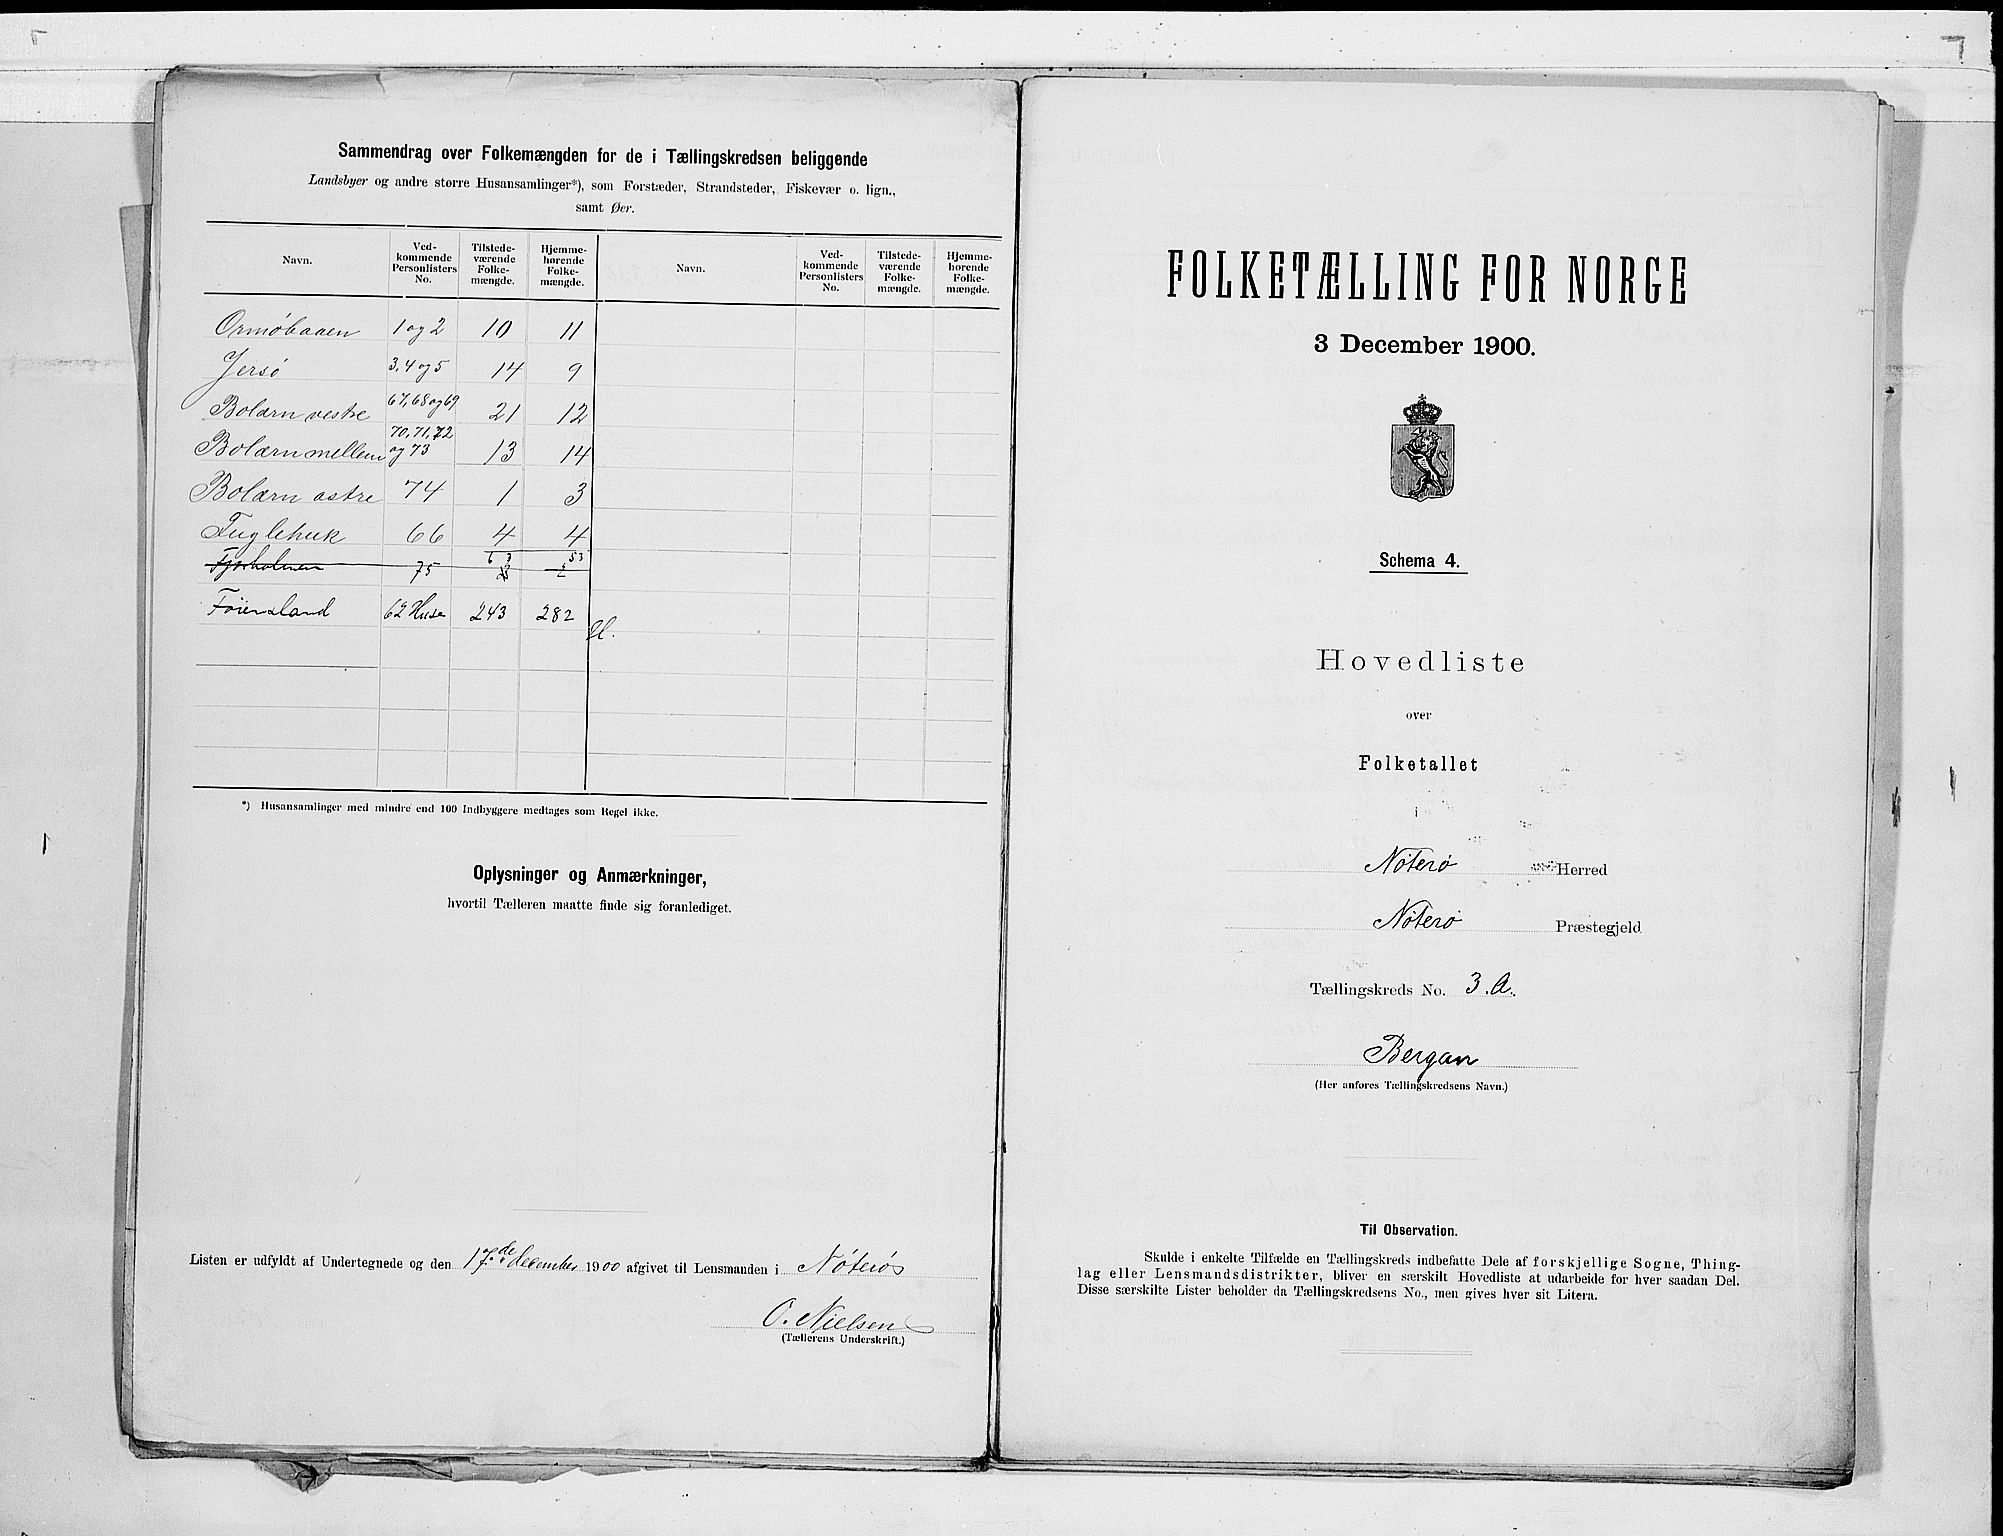 Sammendrag over Folkemængden for de i Tællingskredsen beliggende
Landsbyer og andre større Husansamlinger*), som Forstæder, Strandsteder, Fiskevær o. lign.,
samt Øer.
Navn. Ved-kommende Personlisters No. Tilstede-værende Folke-mængde. Hjemme-hørende Folke-mængde. Navn. Ved-kommende Personlisters No. Tilstede-værende Folke-mængde. Hjemme-hørende Folke-mængde.
Ormøbaaen 1 og 2 10 11
Jersø 3, 4 og 5 14 9
Bolærn vestre 67, 68 og 69 21 12
Bolærn mellem 70, 71, 72 og 73 13 14
Bolærn østre 74 1 3
Fuglehuk 66 4 4
63 53
Fjærholmen 75
Föiensland 62 Huse 243 282
*) Husansamlinger med mindre end 100 Indbyggere medtages som Regel ikke.
Oplysninger og Anmærkninger,
hvortil Tælleren maatte finde sig foranlediget.
Listen er udfyldt af Undertegnede og den 17de december 1900 afgivet til Lensmanden i Nøterøs
O. Nielsen
(Tællerens Underskrift.)
FOLKETÆLLING FOR NORGE
3 December 1900.
Schema 4.
Hovedliste
over
Folketallet
i
Nøterø Herred
Nøterø Præstegjeld
Tællingskreds No. 3. A.
Bergan
(Her anføres Tællingskredsens Navn.)
Til Observation.
Skulde i enkelte Tilfælde en Tællingskreds indbefatte Dele af forskjellige Sogne, Thing-
lag eller Lensmandsdistrikter, bliver en særskilt Hovedliste at udarbeide for hver saadan Del.
Disse særskilte Lister beholder da Tællingskredsens No., men gives hver sit Litera.